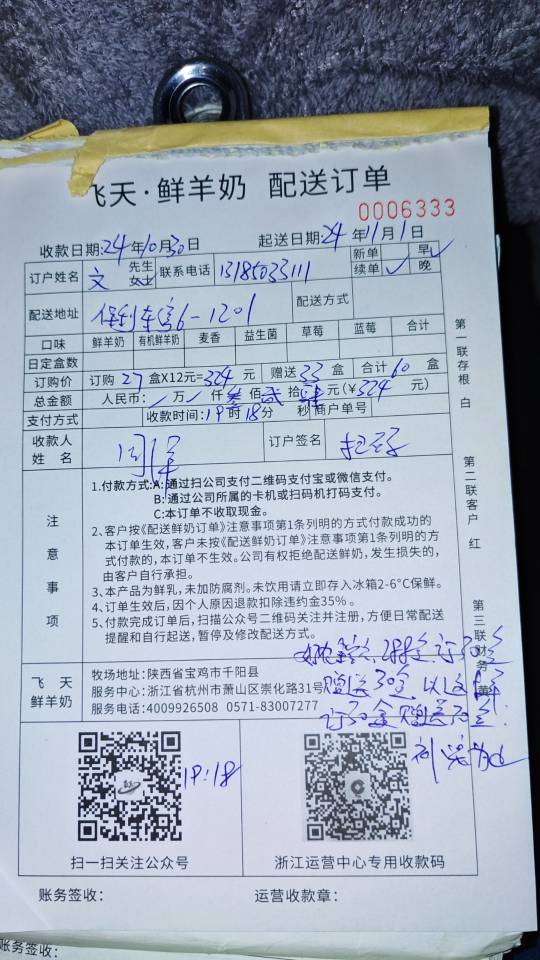 飞天·鲜羊奶 配送订单
0006333
收款日期:24年10月30日 起送日期:24年11月1日
订户姓名 文 先生 女士 联系电话 13185033111 新单 早✓
续单 ✓ 晚
配送地址 6-1201 配送方式
口味 鲜羊奶 有机鲜羊奶 麦香 益生菌 草莓 蓝莓 合计
日定盒数
订购价 订购27盒X12元=324元 赠送33盒 合计60盒
总金额 人民币: 万 仟叁佰贰拾肆元(￥324元)
支付方式 收款时间:19时18分 秒 商户单号
收款人姓名 订户签名
注意事项
1.付款方式:A:通过扫公司支付二维码支付宝或微信支付。
B:通过公司所属的卡机或扫码机打码支付。
C:本订单不收取现金。
2、客户按《配送鲜奶订单》注意事项第1条列明的方式付款成功的
本订单生效，客户未按《配送鲜奶订单》注意事项第1条列明的方
式付款的，本订单不生效。公司有权拒绝配送鲜奶，发生损失的，
由客户自行承担。
3、本产品为鲜乳，未加防腐剂。未饮用请立即存入冰箱2-6°C保鲜。
4、订单生效后，因个人原因退款扣除违约金35%。
5、付款完成订单后，扫描公众号二维码关注并注册，方便日常配送
提醒和自行起送，暂停及修改配送方式。
第一联存根 白
第二联客户 红
第三联财务 黄
订30盒
赠送30盒 以后
订30盒赠送30盒
飞天鲜羊奶
牧场地址:陕西省宝鸡市千阳县
服务中心:浙江省杭州市萧山区崇化路31号
服务电话:4009926508 0571-83007277
19:18
扫一扫关注公众号 浙江运营中心专用收款码
账务签收: 运营收款章:
账务签收: